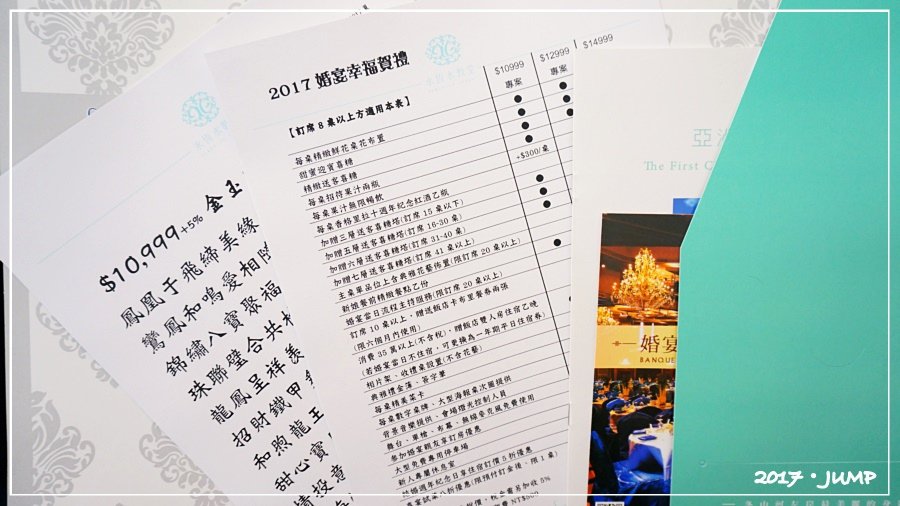 $10,999+5% 金玉
鳳凰于飛締美緣
鸞鳳和鳴愛相隨
錦繡八寶聚福
珠聯璧合共
龍鳳呈祥美
招財鐵甲
和煦龍王
甜心寶
情投意
2017 婚宴幸福賀禮
$10999 $12999 $14999
專案 專案
【訂席 8 桌以上方適用本表】
每桌精緻鮮花桌花布置
甜蜜迎賓喜糖
精緻送客喜糖
每桌招待果汁兩瓶
每桌果汁無限暢飲 +$300/桌
每桌香格里拉十週年紀念紅酒乙瓶
加贈三層送客喜糖塔(訂席 15 桌以下)
加贈五層送客喜糖塔(訂席 16-30 桌)
加贈六層送客喜糖塔(訂席 31-40 桌)
加贈七層送客喜糖塔(訂席 41 桌以上)
主桌單品位上含典雅花藝佈置(限訂席 20 桌以上)
新娘餐前精緻餐點乙份
婚宴當日流程主持服務(限訂席 20 桌以上)
訂席 10 桌以上，贈送飯店卡布里餐券兩張
(限六個月內使用)
消費 35 萬以上(不含稅)，贈飯店雙人房住宿乙晚
(若婚宴當日不住宿，可更換為一年期平日住宿券)
相片架、收禮桌設置(不含花藝)
典雅禮金簿、簽字筆
每桌精美菜卡
每桌數字桌牌、大型海報桌次圖提供
背景音樂提供、會場燈光控制人員
舞台、單槍、布幕、無線麥克風免費使用
參加婚宴親友享訂房優惠
大型免費專用停車場
新人專屬休息室
結婚週年紀念日享住宿訂價 5 折優惠
試菜八折優惠(限預付訂金後，限 1 桌)
亞洲
The First G
婚宴
BANQUE
2017・JUMP